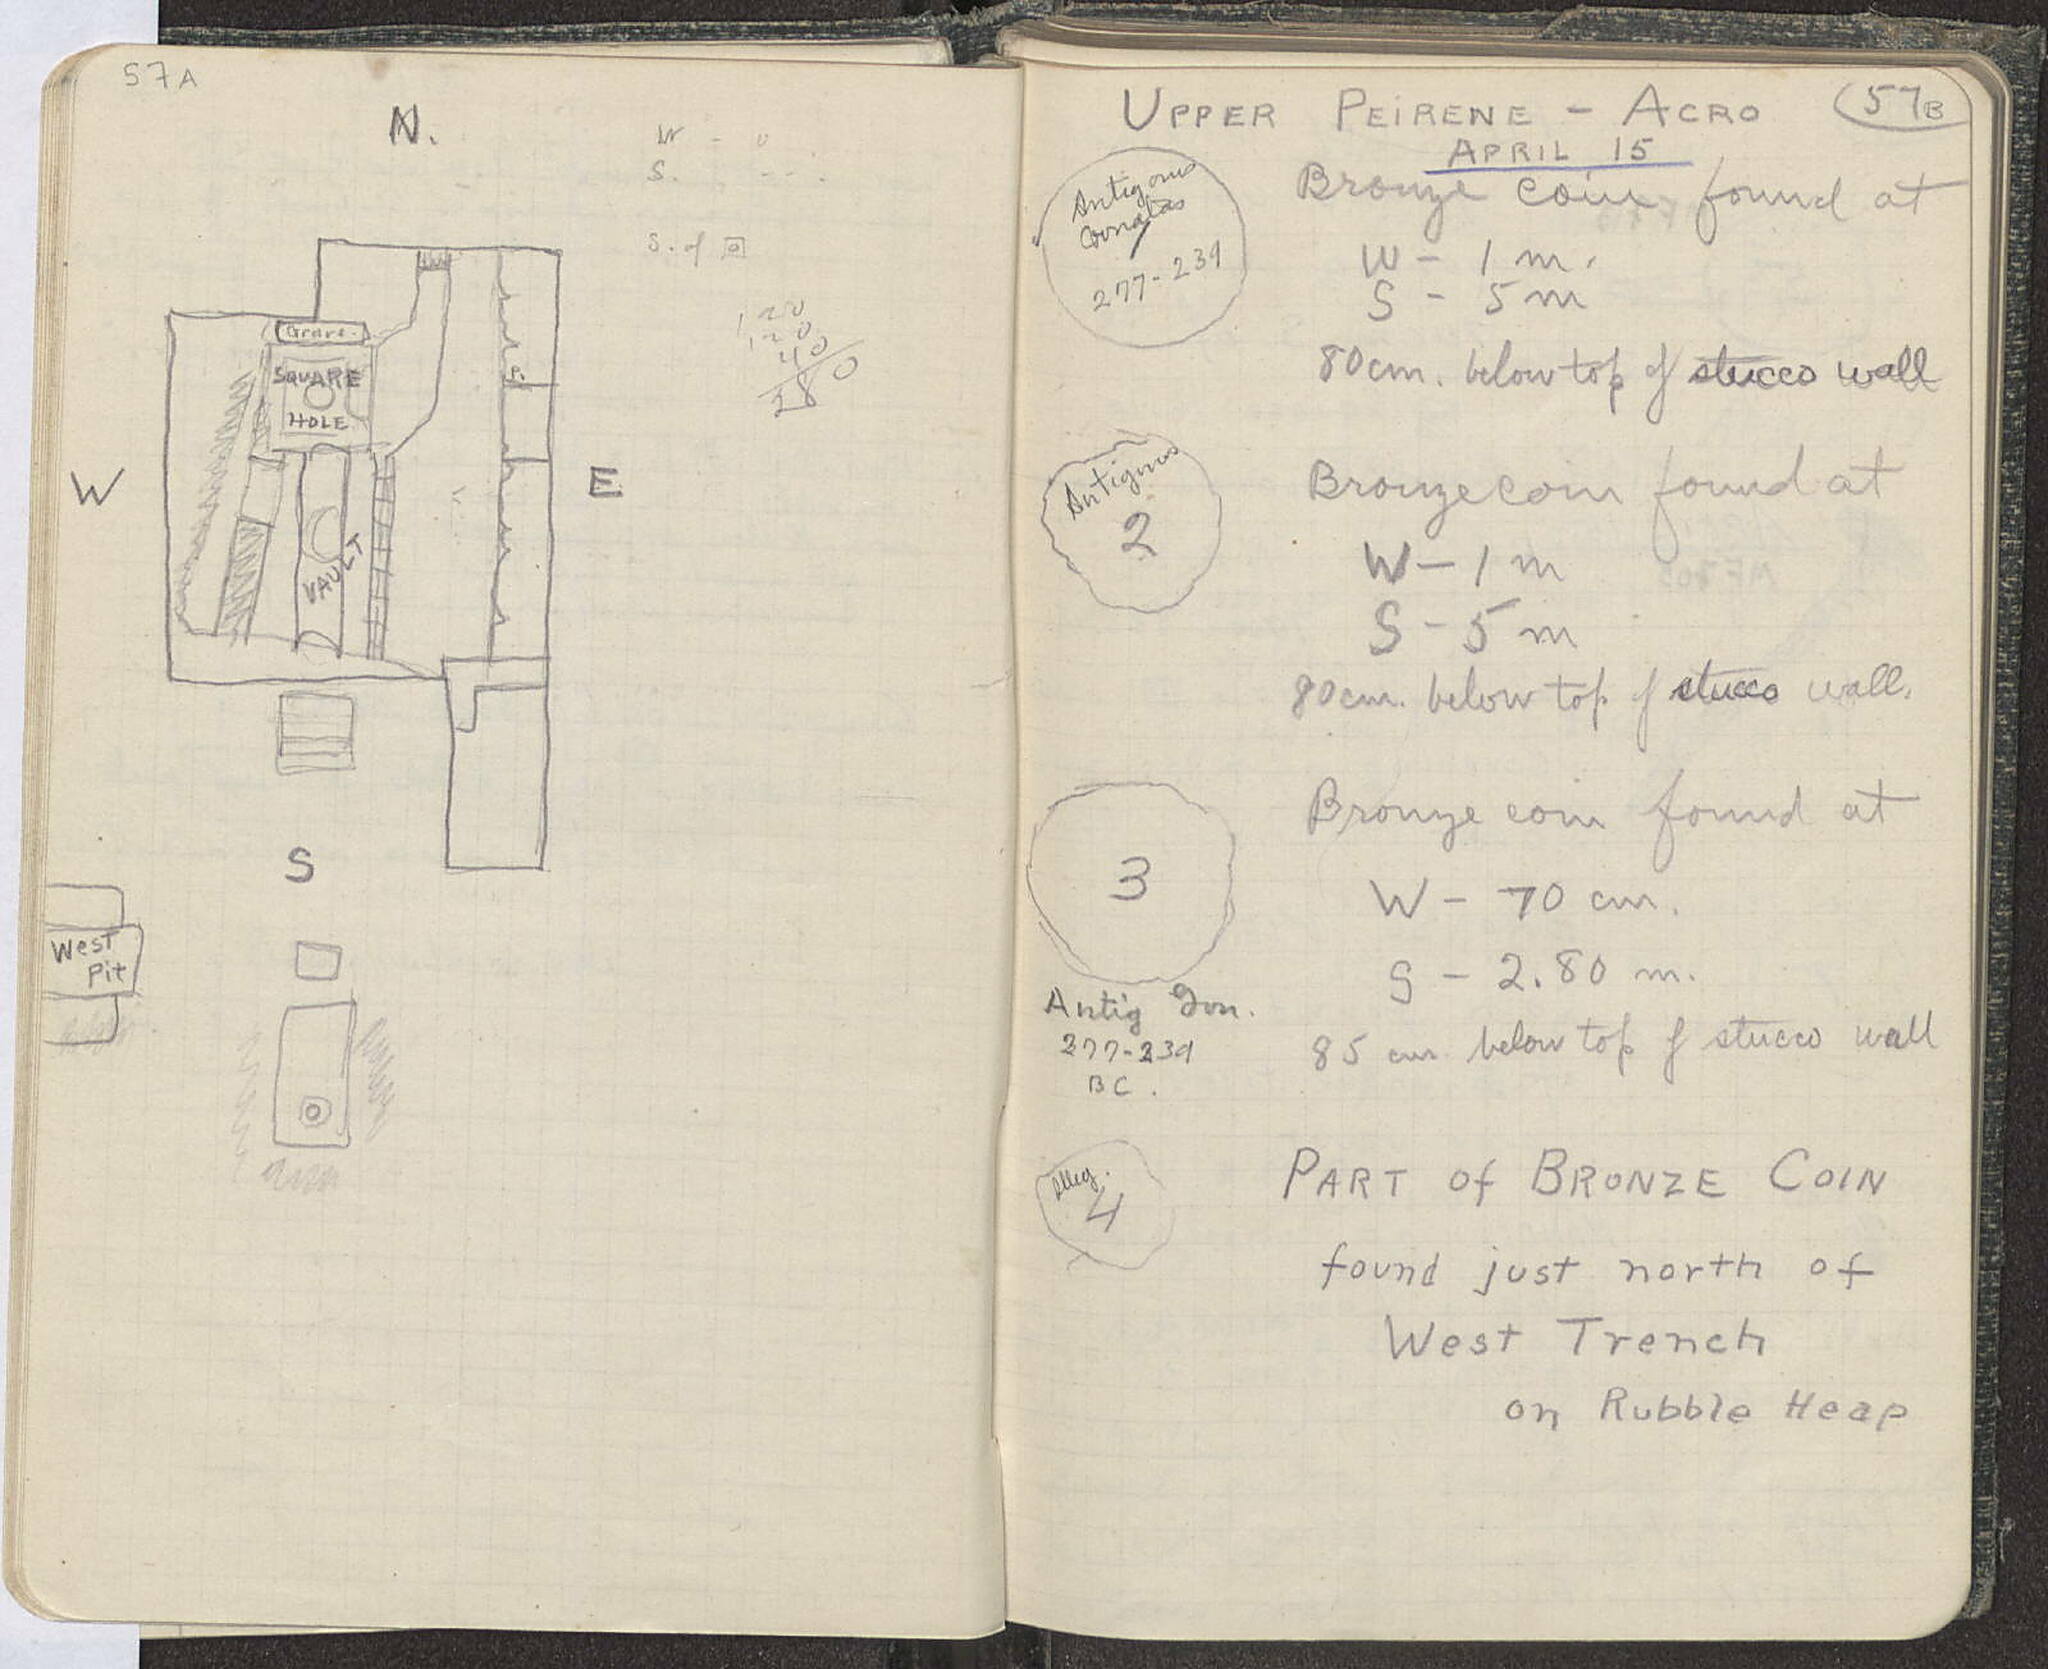 57A
N.
W -
S. - - -
S. of
Grave.
SQUARE
HOLE
P.
120
120
40
280
W
E
VAULT
S
West
Pit
57B
UPPER PEIRENE - ACRO
APRIL 15
Antigonus
277-239
Bronze coin found at
W - 1 m.
S - 5 m
80 cm. below top of stucco wall
Antigonus
2
Bronze coin found at
W - 1 m
S - 5 m
80 cm. below top of stucco wall.
3
Antig Gon.
277-239
BC.
Bronze coin found at
W - 70 cm.
S - 2.80 m.
85 cm below top of stucco wall
Illeg.
4
PART of BRONZE COIN
found just north of
West Trench
on Rubble Heap